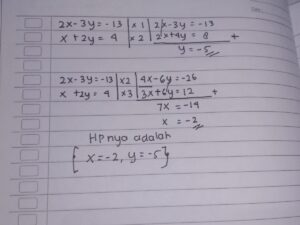 2x-3y=-13 | x 1 | 2x-3y=-13
x+2y=4 | x 2 | 2x+4y=8 +
y=-5
2x-3y=-13 | x2 | 4x-6y=-26
x+2y=4 | x3 | 3x+6y=12 +
7x=-14
x=-2
HPnya adalah
{x=-2, y=-5}